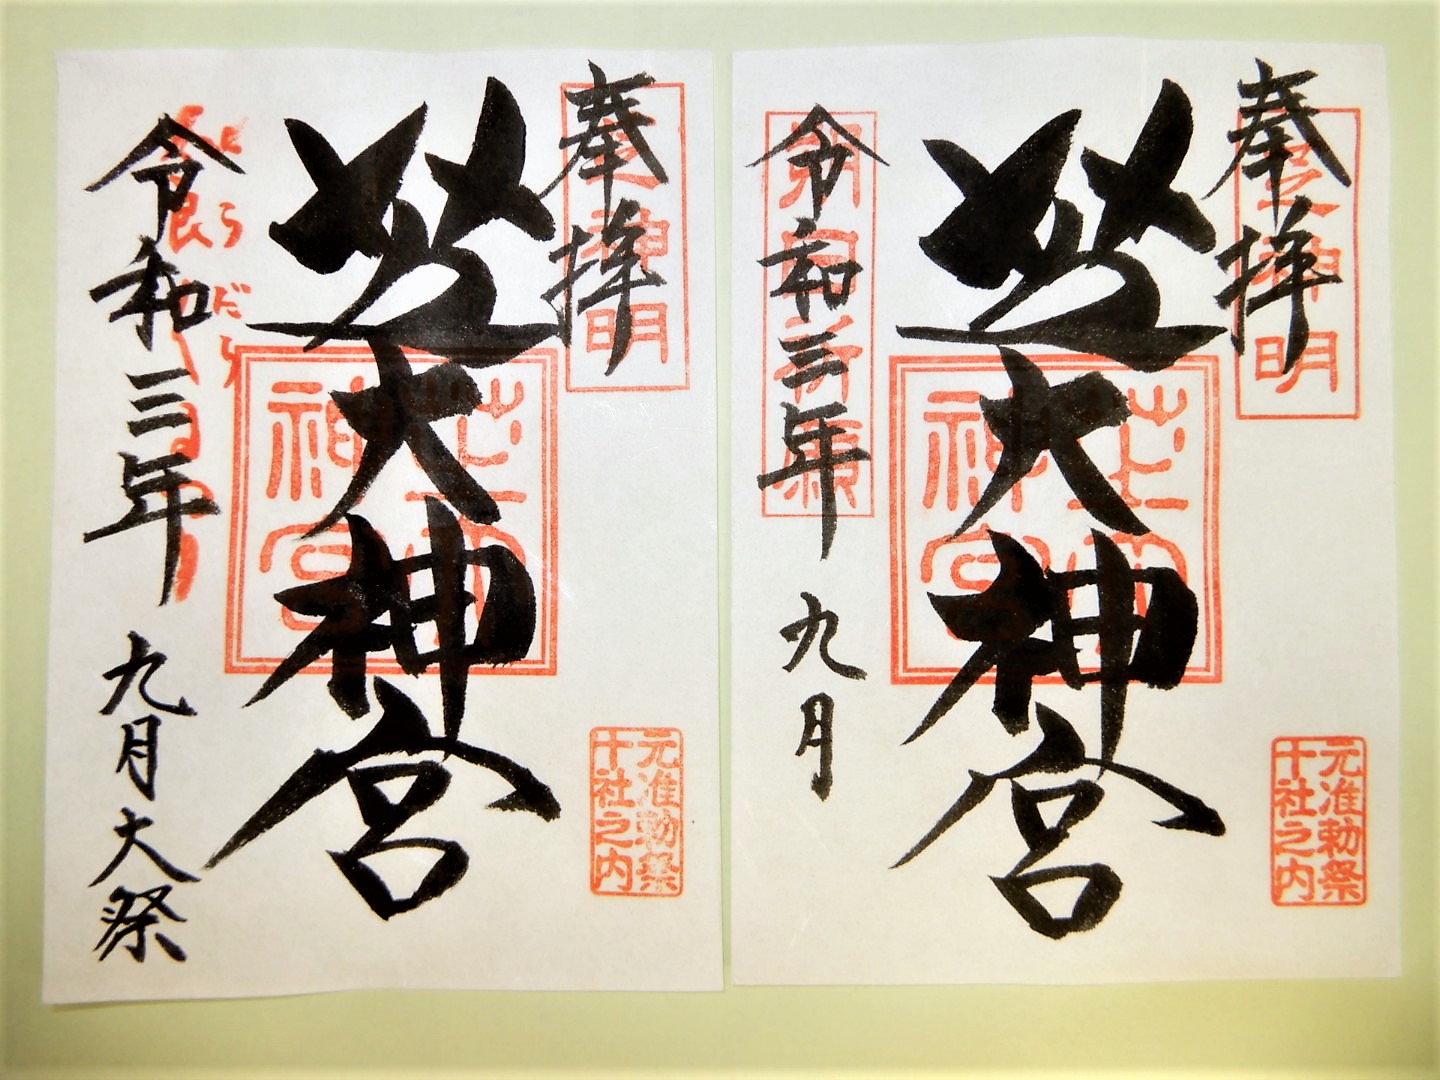 奉拝
芝神明
元准勅祭
十社之内
芝大神宮
芝大
神宮
令和三年 九月
朔日祈願
奉拝
芝神明
元准勅祭
十社之内
芝大神宮
芝大
神宮
令和三年 九月大祭